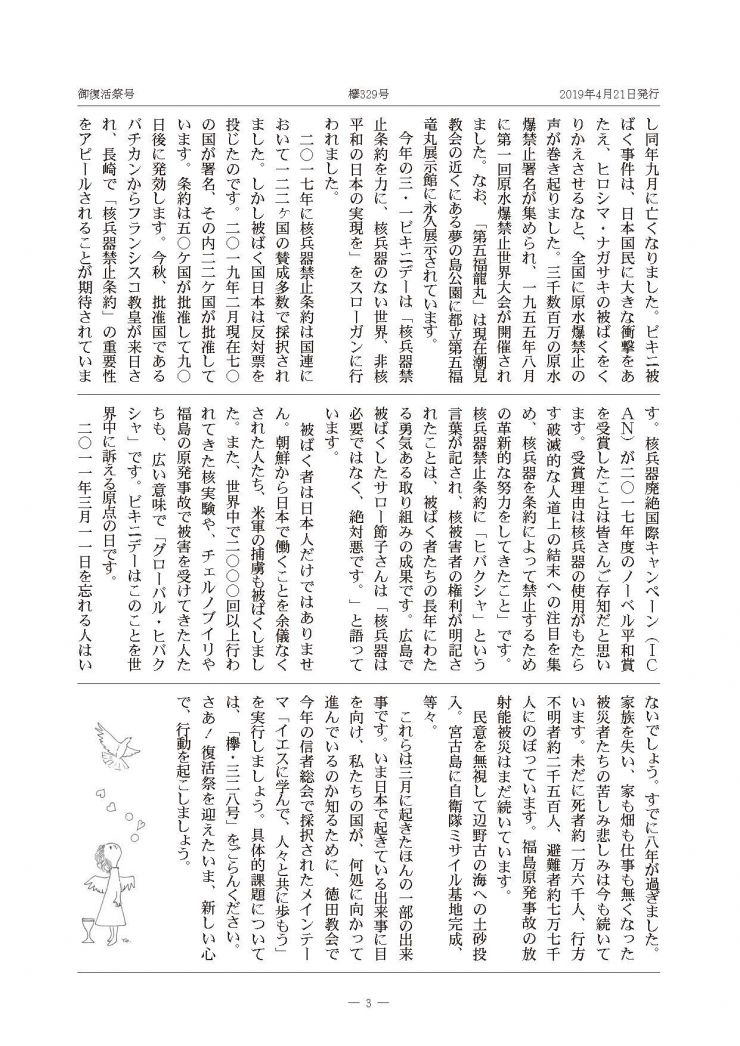 御復活祭号
欅329号
2019年4月21日発行
し同年九月に亡くなりました。ビキニ被
ばく事件は、日本国民に大きな衝撃をあ
たえ、ヒロシマ・ナガサキの被ばくをく
りかえさせるなと、全国に原水爆禁止の
声が巻き起りました。三千数百万の原水
爆禁止署名が集められ、一九五五年八月
に第一回原水爆禁止世界大会が開催され
ました。なお、「第五福龍丸」は現在潮見
教会の近くにある夢の島公園に都立第五福
竜丸展示館に永久展示されています。
今年の三・一ビキニデーは「核兵器禁
止条約を力に、核兵器のない世界、非核
平和の日本の実現を」をスローガンに行
われました。
二〇一七年に核兵器禁止条約は国連に
おいて一二二ヶ国の賛成多数で採択され
ました。しかし被ばく国日本は反対票を
投じたのです。二〇一九年二月現在七〇
の国が署名、その内二二ケ国が批准して
います。条約は五〇ケ国が批准して九〇
日後に発効します。今秋、批准国である
バチカンからフランシスコ教皇が来日さ
れ、長崎で「核兵器禁止条約」の重要性
をアピールされることが期待されていま
す。核兵器廃絶国際キャンペーン（ＩＣ
ＡＮ）が二〇一七年度のノーベル平和賞
を受賞したことは皆さんご存知だと思い
ます。受賞理由は核兵器の使用がもたら
す破滅的な人道上の結末への注目を集
め、核兵器を条約によって禁止するため
の革新的な努力をしてきたこと」です。
核兵器禁止条約に「ヒバクシャ」という
言葉が記され、核被害者の権利が明記さ
れたことは、被ばく者たちの長年にわた
る勇気ある取り組みの成果です。広島で
被ばくしたサロー節子さんは「核兵器は
必要ではなく、絶対悪です。」と語って
います。
被ばく者は日本人だけではありませ
ん。朝鮮から日本で働くことを余儀なく
された人たち、米軍の捕虜も被ばくしまし
た。また、世界中で二〇〇〇回以上行わ
れてきた核実験や、チェルノブイリや
福島の原発事故で被害を受けてきた人た
ちも、広い意味で「グローバル・ヒバク
シャ」です。ビキニデーはこのことを世
界中に訴える原点の日です。
二〇一一年三月一一日を忘れる人はい
ないでしょう。すでに八年が過ぎました。
家族を失い、家も畑も仕事も無くなった
被災者たちの苦しみ悲しみは今も続いて
います。未だに死者約一万六千人、行方
不明者約二千五百人、避難者約七万七千
人にのぼっています。福島原発事故の放
射能被災はまだ続いています。
民意を無視して辺野古の海への土砂投
入。宮古島に自衛隊ミサイル基地完成、
等々。
これらは三月に起きたほんの一部の出来
事です。いま日本で起きている出来事に目
を向け、私たちの国が、何処に向かって
進んでいるのか知るために、徳田教会で
今年の信者総会で採択されたメインテー
マ「イエスに学んで、人々と共に歩もう」
を実行しましょう。具体的課題について
は、「欅・三二八号」をごらんください。
さあ！復活祭を迎えたいま、新しい心
で、行動を起こしましょう。
― 3 ―